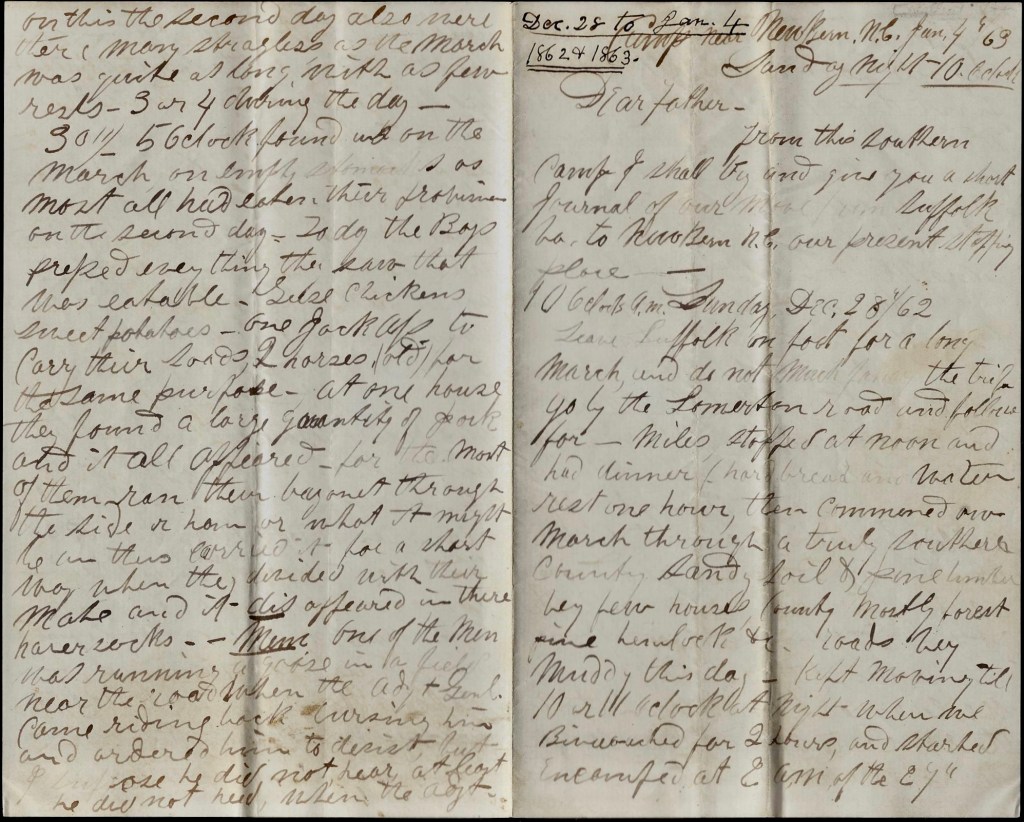 on this the second day also were
there many straglers as the March
was quite as long with as few
rests - 3 or 4 during the day -
30th 5 Oclock found us on the
March on empty stomachs as
most all had eaten their provision
on the second day - To day the Boys
presed everything they saw that
was eatable - Geese Chickens
sweet potatoes - one Jack Ass to
carry their loads, 2 horses (old) for
the same purpose - at one house
they found a large quantity of pork
and it all appeared - for the most
of them ran their bayonet through
the side or ham or what it might
be an thus carried it for a short
way when they divided with their
mate and it disappeared in there
haversocks - one of the Men
was running a goose in a field
near the road when the Adjt Genl.
came riding back cursing him
and ordered him to desist, but
I suppose he did not hear, at least
he did not heed, when the Adjt-
Dec. 28 to Jan. 4
1862 & 1863.
Camp near NewBern. N.C. Jan, 4th 63
Sunday Night - 10. Oclock
Dear father -
From this southern
Camp I shall try and give you a short
Journal of our Move from Suffolk
Va. to NewBern N.C. our present stopping
place -
10 Oclock A.m. Sunday, Dec, 28th/62
Leave Suffolk on foot for a long
March, and do not Much fancy the trip
go by the Somerton road and follow
for - Miles stopped at noon and
had dinner (hard bread and water
rest one hour, then commenced our
March through a truly southern
County Sandy Soil & pine timber
very few houses, County Mostly forest
pine hemlock &c. roads very
Muddy this day - Kept Moving till
10 or 11 Oclock at Night when we
Bivouacked for 2 hours, and started
Encamped at 2 am, of the 29"